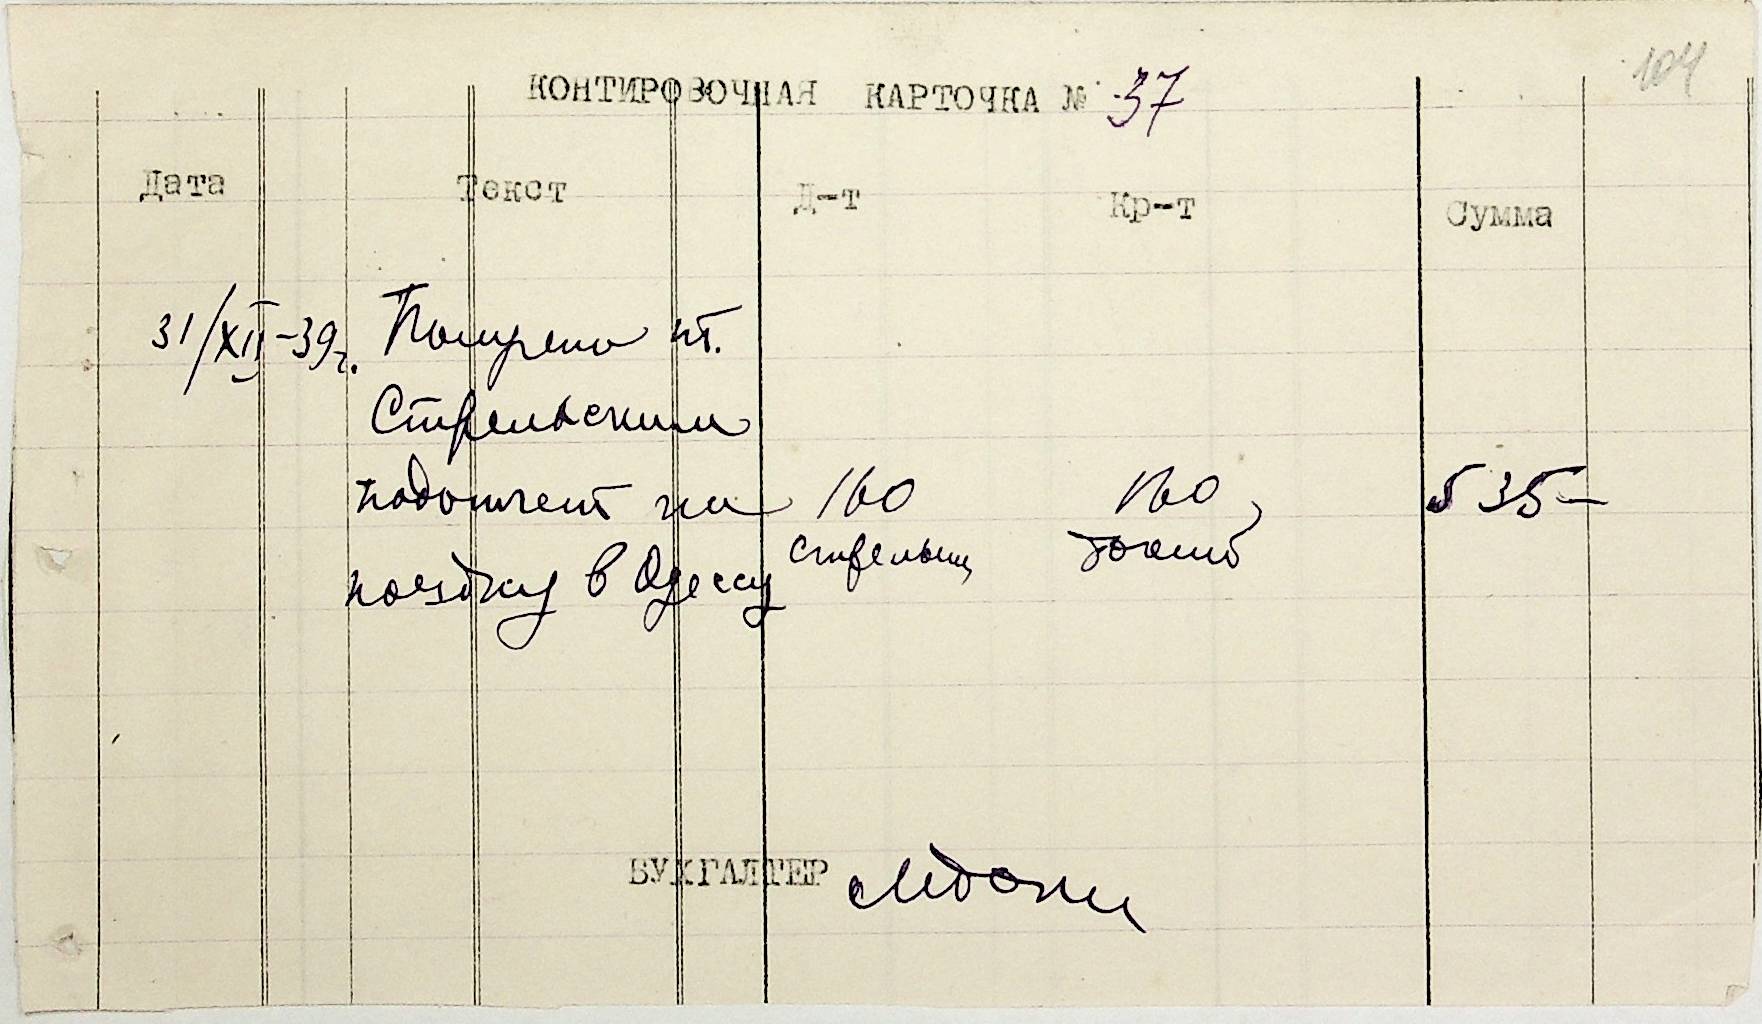 104
КОНТИРОВОЧНАЯ КАРТОЧКА № 37
Дата Текст Д-т Кр-т Сумма
31/XII-39г. Получено т.
Стрельским
подотчет на 160 160 535-
поездку в Одессу
БУХГАЛТЕР